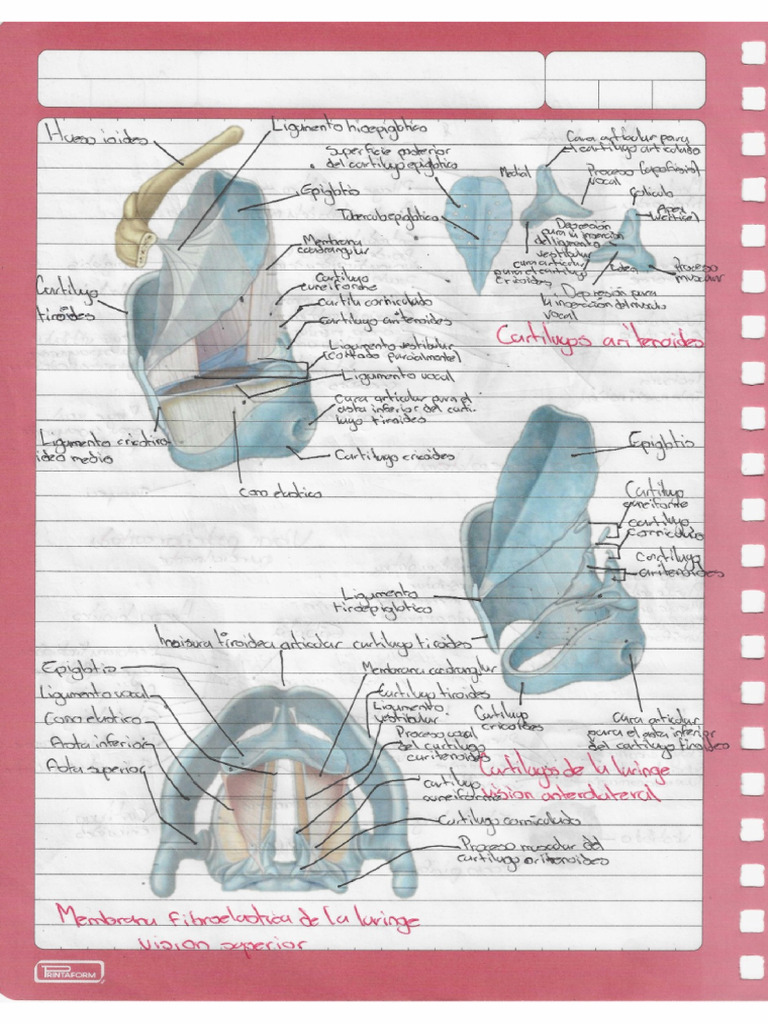 Hueso ioides
Ligamento hioepiglotico
Superficie posterior
del cartilago epiglotico
Epiglotis
Tuberculo epiglotico
Membrana
cuadrangular
Cartilago
tiroides
Cartilago
cuneiforme
cartila corniculado
Cartilago aritenoides
Ligamento vestibular
(cortado parcialmente)
Ligamento vocal
Cara articular para el
asta inferior del carti-
lago tiroides
Ligamento cricotiro-
ideo medio
Cartilago cricoides
Cono elastico
Cara articular para
el cartilago articulado
Medial
Proceso (apofisis)
vocal
Coliculo
Apex
(vertice)
Depresión
para la insercion
del ligamento
vestibular
cara articular
para el cartilago
cricoides
Proceso
muscular
Depresión para
la inserccion del musculo
vocal
Cartilagos aritenoides
Epiglotis
Cartilago
cuneiforme
cartilago
corniculado
Cartilago
aritenoides
Ligamento
tiroepiglotico
Cartilago
cricoides
Cara articular
para el asta inferior
del cartilago tiroides
Cartilagos de la laringe
vision anterolateral
Incisura tiroidea articular cartilago tiroides
Epiglotis
Ligamento vocal
Cono elastico
Asta inferior
Asta superior
Membrana cuadrangular
Cartilago tiroides
Ligamento
vestibular
Proceso vocal
del cartilago
aritenoides
cartilago
cuneiforme
Cartilago corniculado
Proceso muscular del
cartilago aritenoides
Membrana fibroelastica de la laringe
vision superior
PRINTAFORM